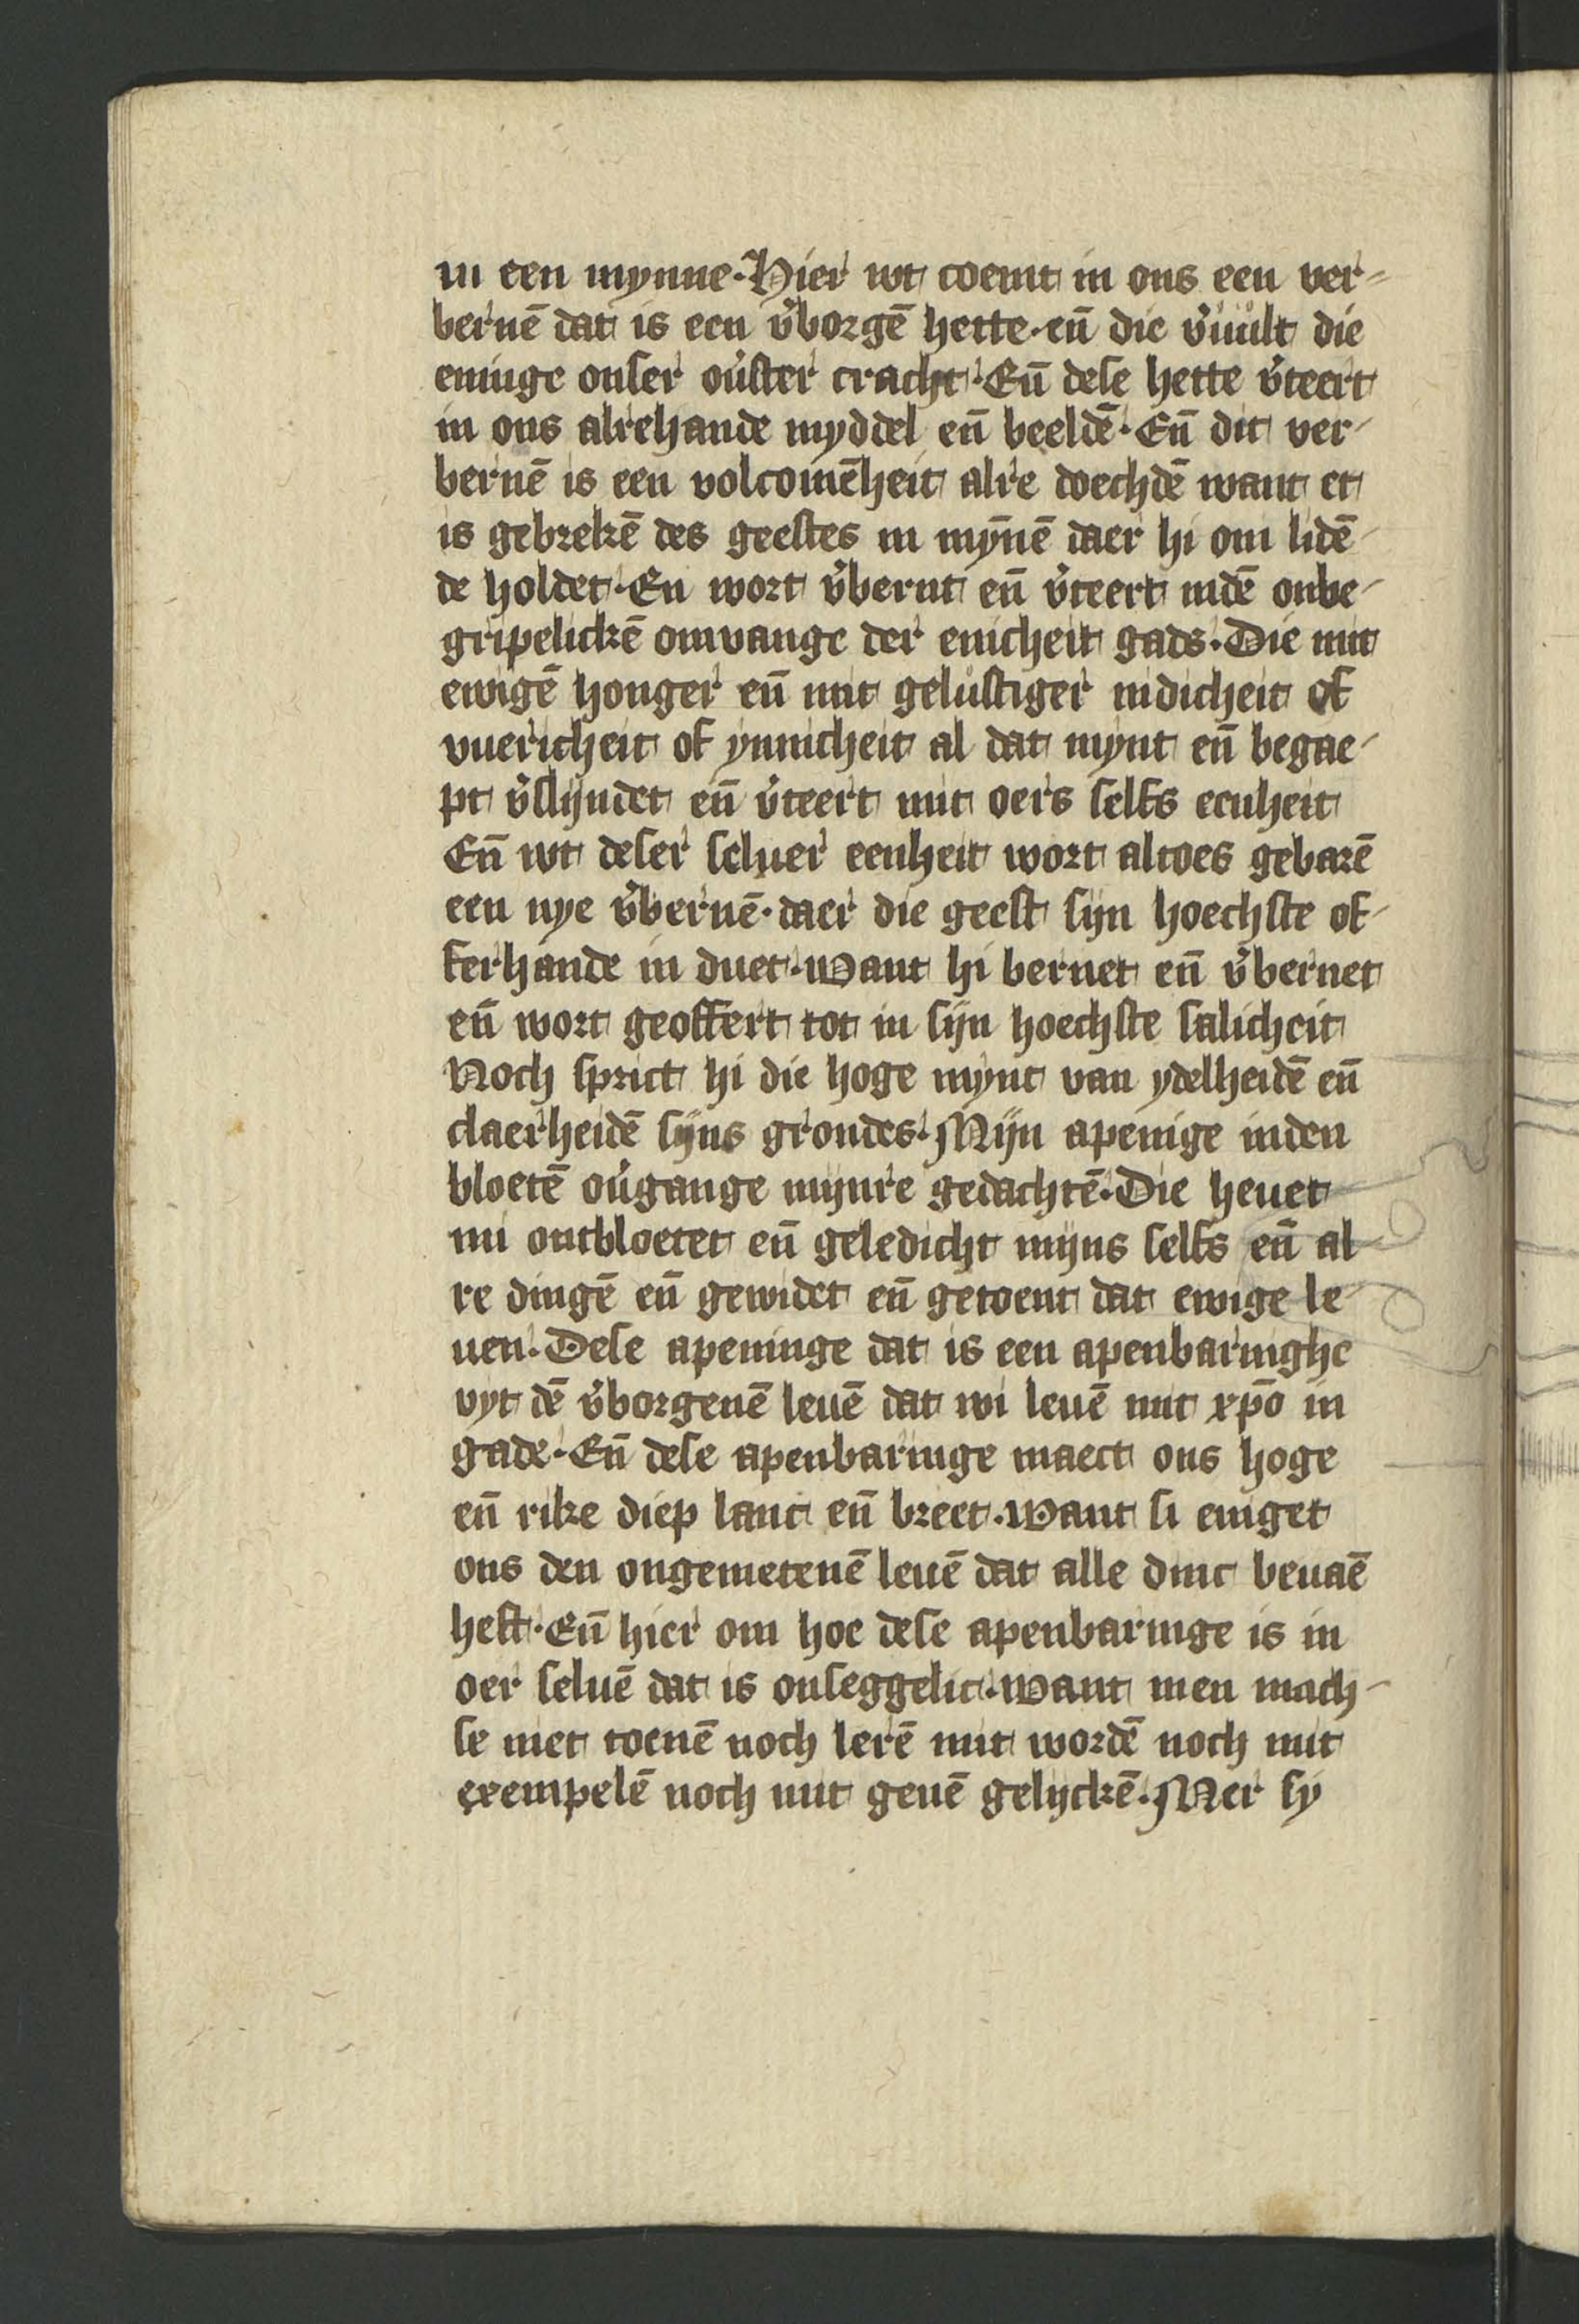 in een mynne. Hier wt coemt in ons een ver-
bernē dat is een v̓borgē hette. en̄ die v̓uult die
eninge onser ou̓ster cracht. En̄ dese hette v̓teert
in ons alrehande myddel en̄ beeldē. En̄ dit ver-
bernē is een volcomēheit alre doechdē want et
is gebrekē des geestes in mȳnē daer hi om lidē-
de holdet. En wort v̓bernt en̄ v̓teert indē onbe-
gripelickē omvange der enicheit gads. Die mit
ewigē honger en̄ mit gelustiger nidicheit of
vuericheit of ynnicheit al dat mynt en̄ begae-
pt v̓slyndet en̄ v̓teert mit oers selfs eenheit
En̄ wt deser seluer eenheit wort altoes gebarē
een nye v̓bernē. daer die geest sijn hoechste of-
ferhande in duet. Want hi bernet en̄ v̓bernet
en̄ wort geoffert tot in sijn hoechste salicheit
Noch sprict hi die hoge mynt van ydelheidē en̄
claerheidē sijns grondes. Mijn apenige inden
bloetē ou̓gange mijnre gedachtē. Die heuet
mi ontbloetet en̄ geledicht mijns selfs en̄ al
re dingē en̄ gewidet en̄ getoent dat ewige le-
uen. Dese apeninge dat is een apenbaringhe
vyt dē v̓borgenē leuē dat wi leuē mit xp̄o in
gade. En̄ dese apenbaringe maect ons hoge
en̄ rike diep lanc en̄ breet. Want si eniget
ons den ongemetenē leuē dat alle dinc beuaē
heft. En̄ hier om hoe dese apenbaringe is in
oer seluē dat is onseggelic. Want men mach-
se niet toenē noch lerē mit wordē noch mit
exempelē noch mit genē gelyckē. Mer sy